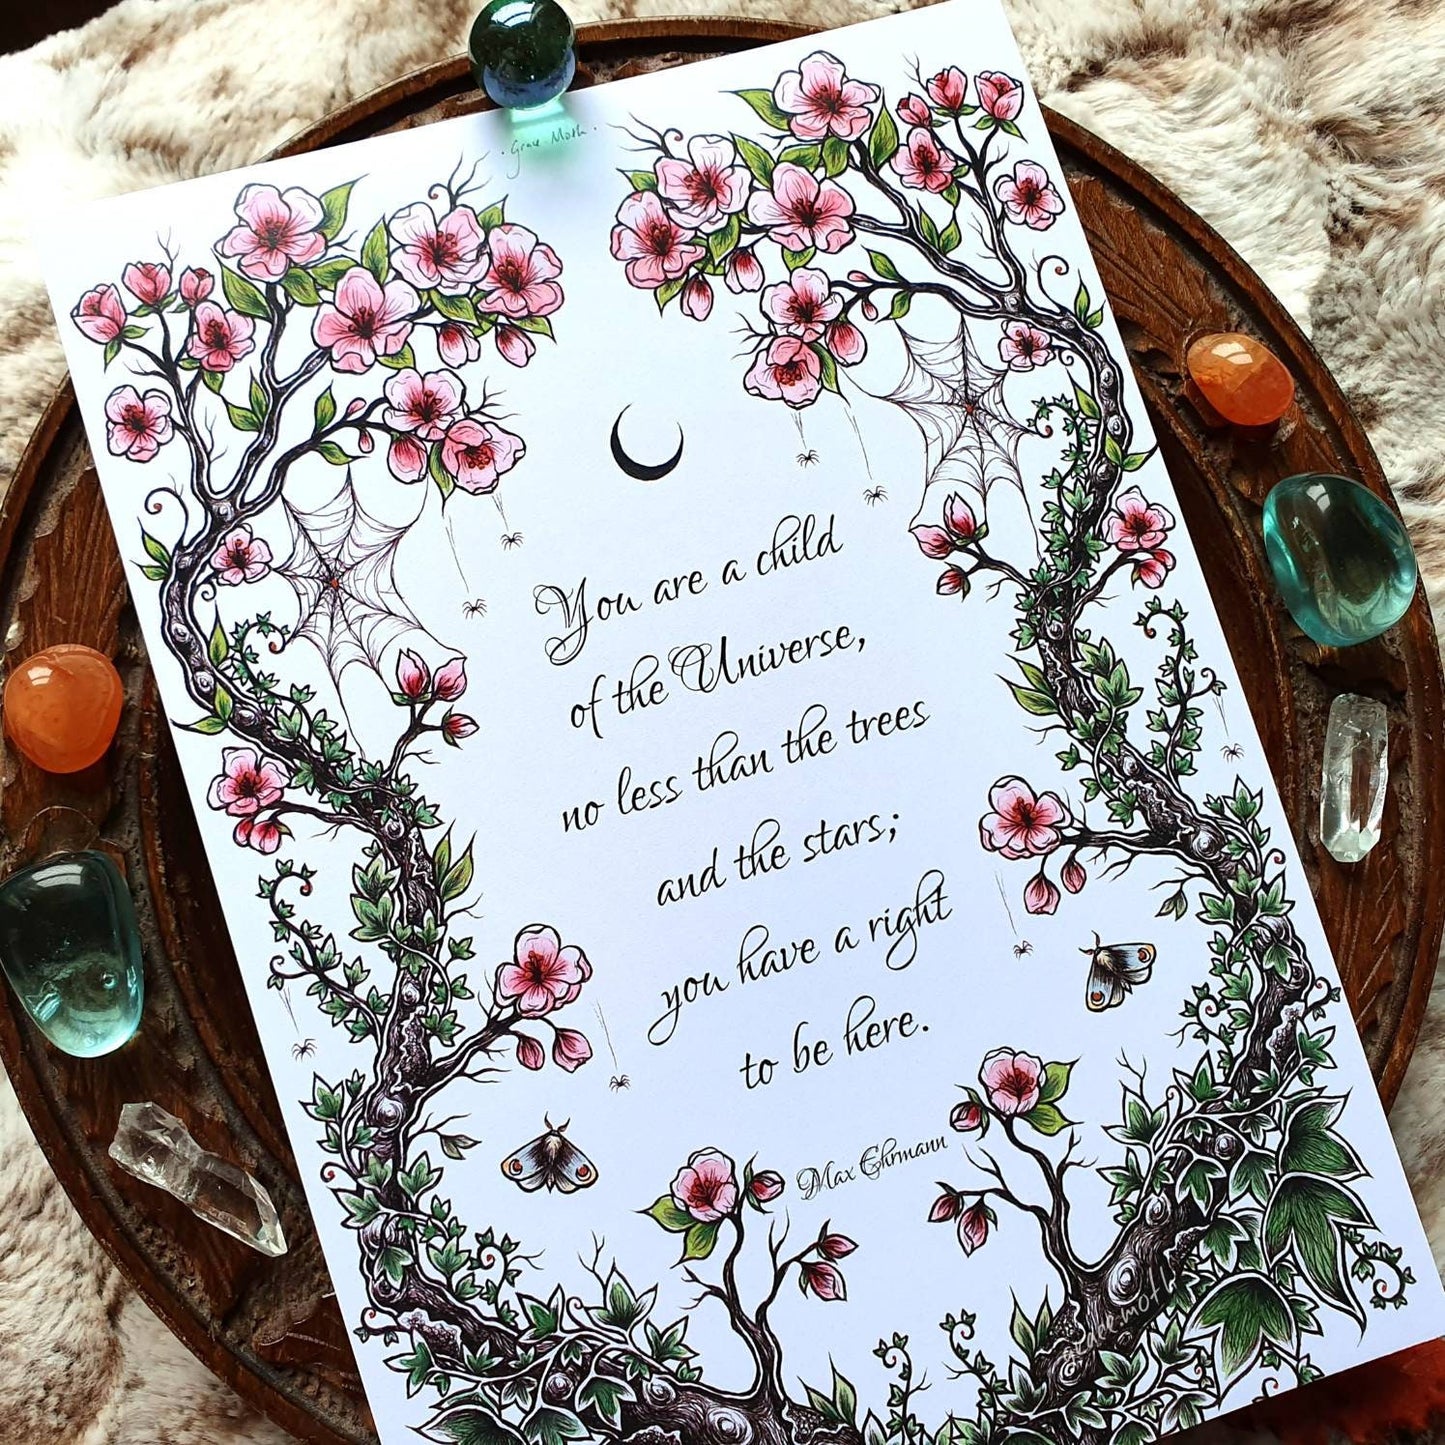 . Grace Moth .
You are a child
of the Universe,
no less than the trees
and the stars;
you have a right
to be here.
Max Ehrmann